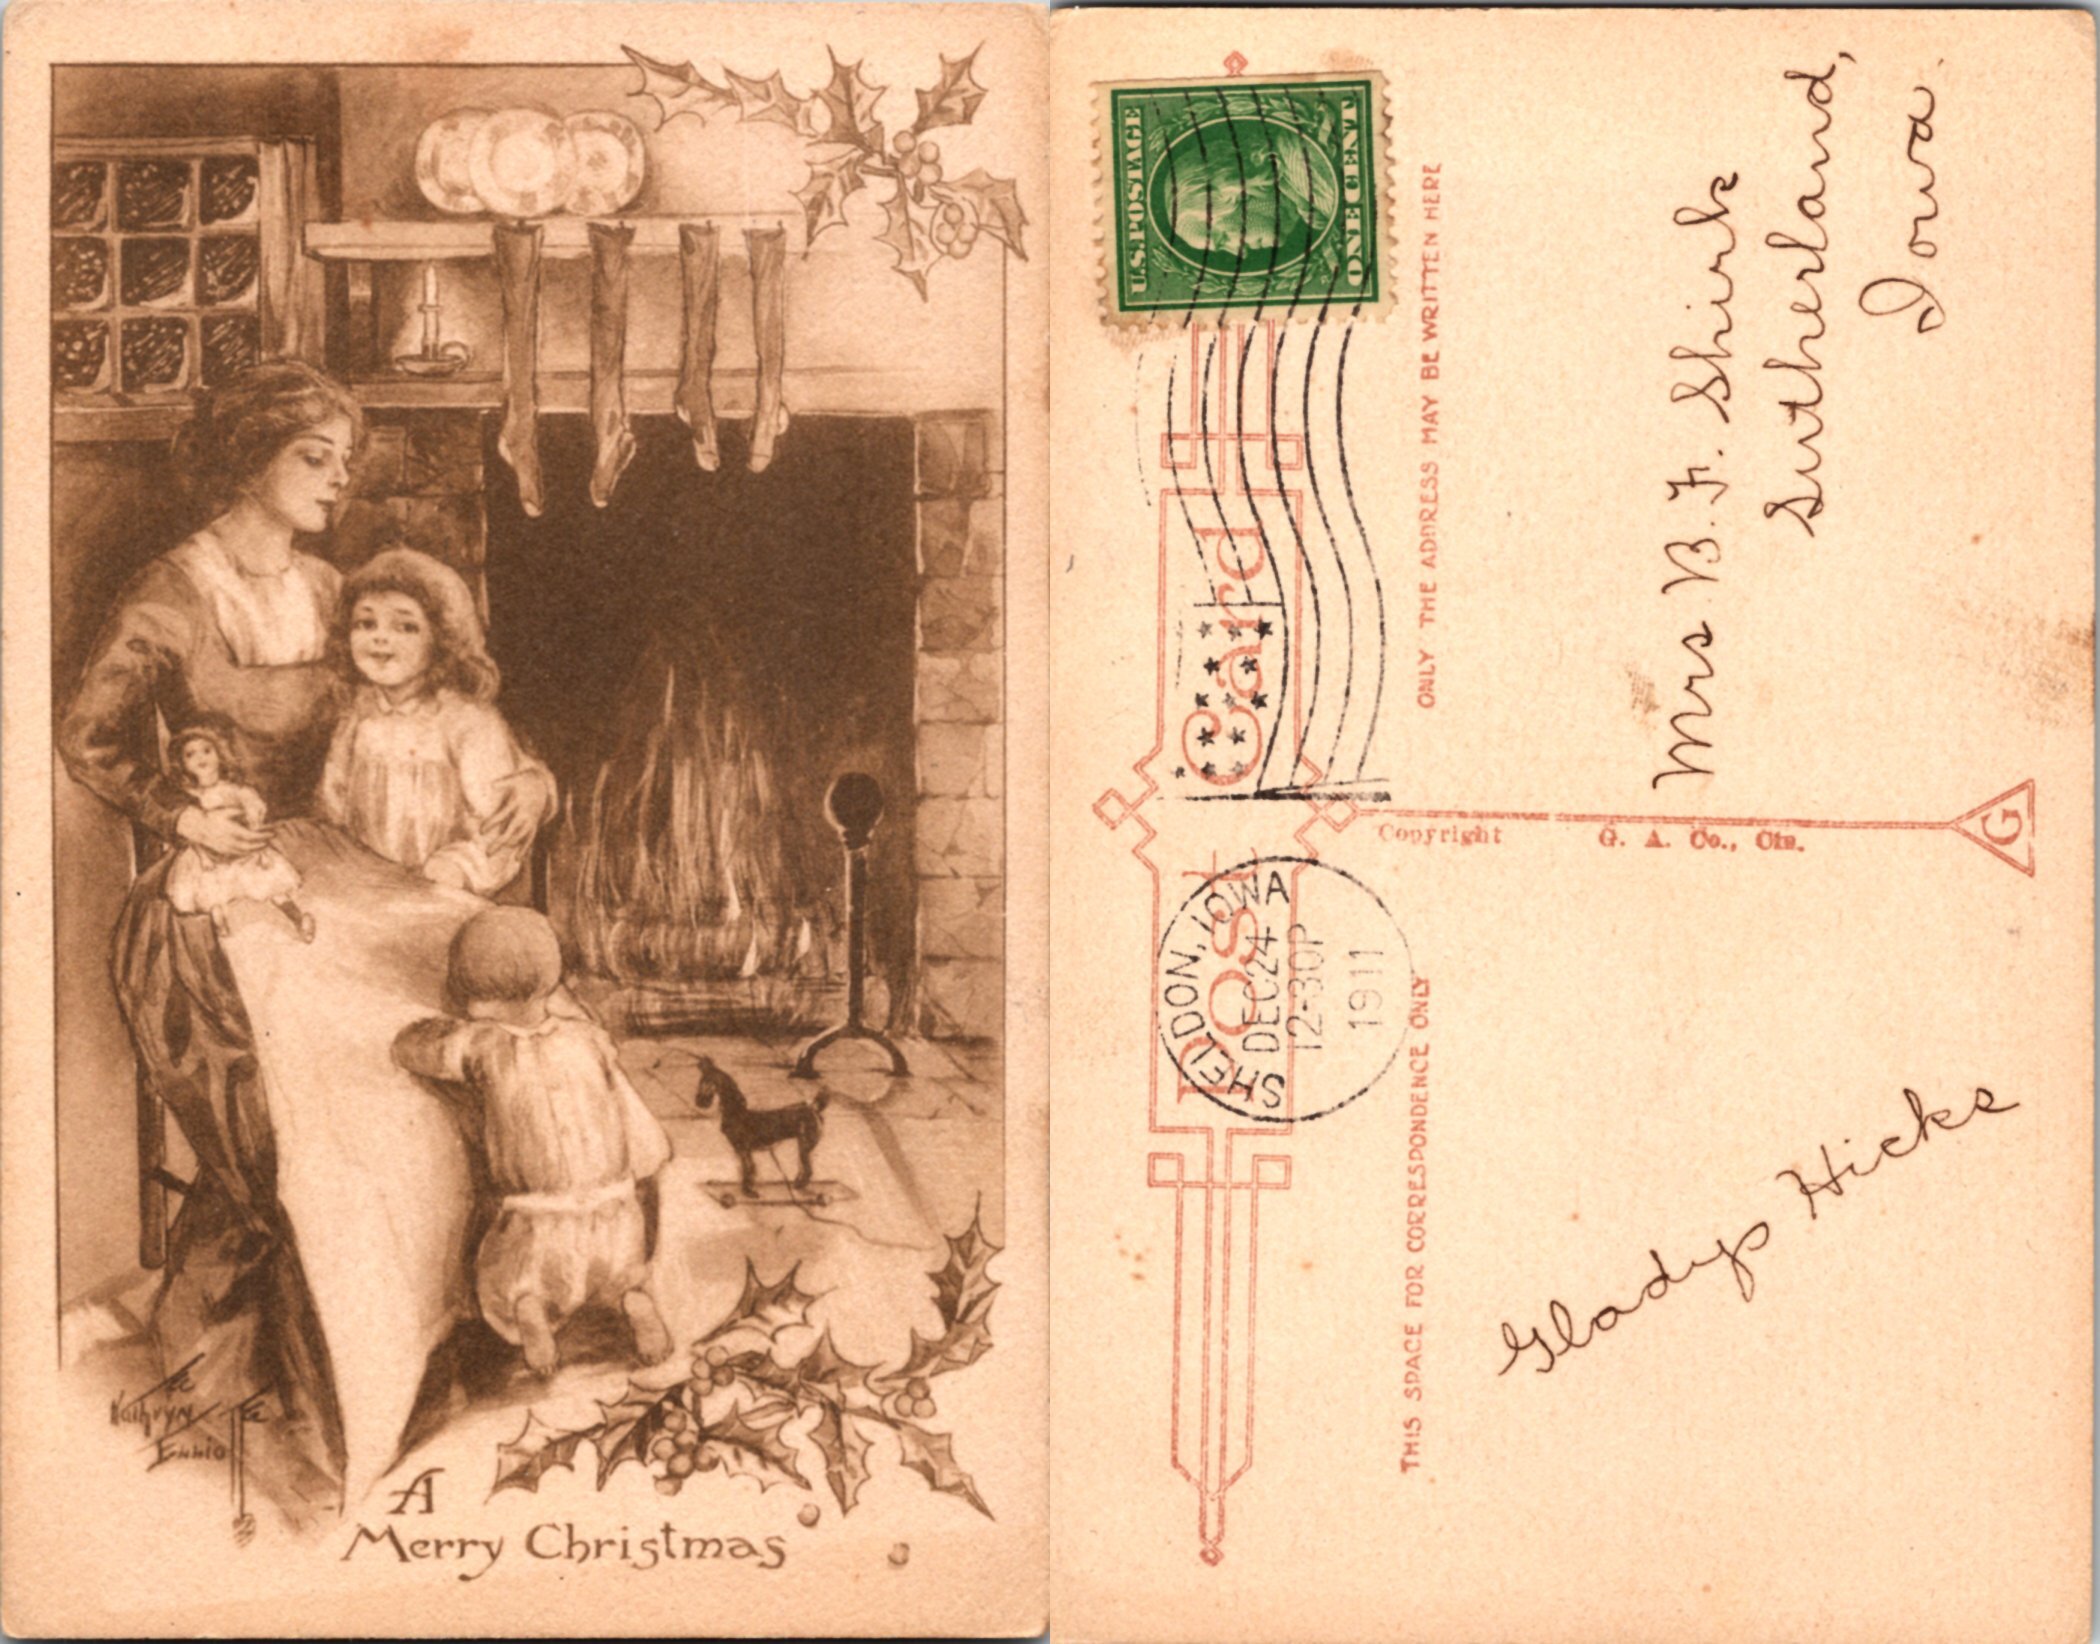 Kathryn
Elliott
A
Merry Christmas
U.S. POSTAGE
ONE CENT
Post Card
SHELDON, IOWA
DEC 24
12-30P
1911
THIS SPACE FOR CORRESPONDENCE ONLY
ONLY THE ADDRESS MAY BE WRITTEN HERE
Copyright G. A. Co., Cin.
G
Gladys Hicks
Mrs B. F. Shirk
Sutherland,
Iowa.